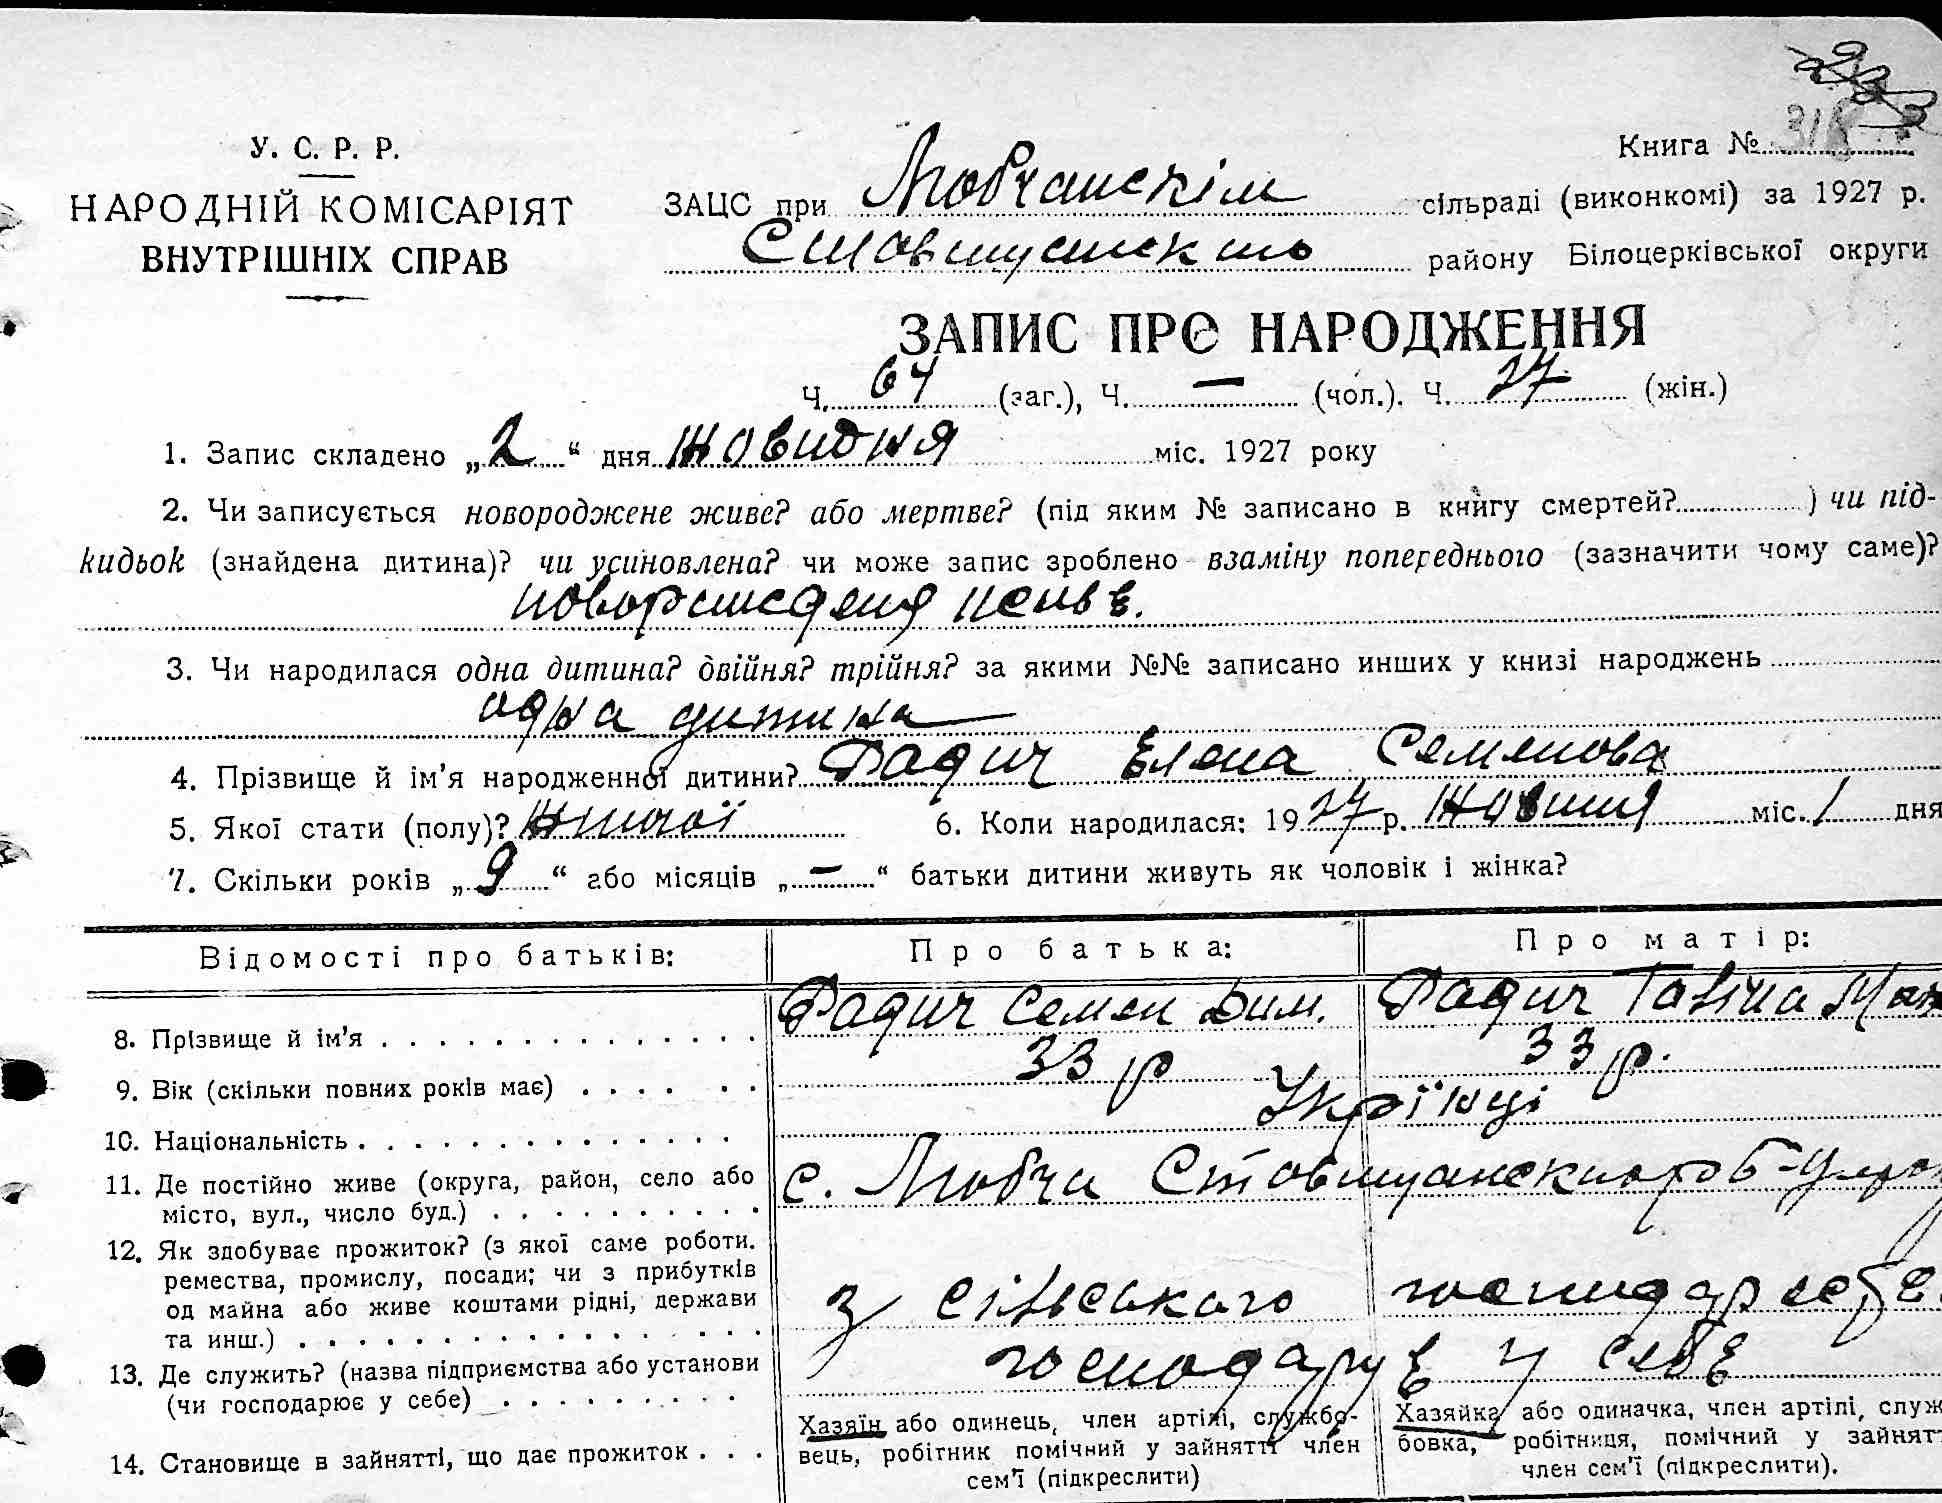 Книга № 318
У. С. Р. Р.
НАРОДНІЙ КОМІСАРІЯТ
ВНУТРІШНІХ СПРАВ
ЗАЦС при Любчанскім сільраді (виконкомі) за 1927 р.
району Білоцерківської округи
ЗАПИС ПРО НАРОДЖЕННЯ
Ч. 64 (заг.), Ч. — (чол.). Ч. 27 (жін.)
1. Запис складено „2“ дня міс. 1927 року
2. Чи записується новороджене живе? або мертве? (під яким № записано в книгу смертей? ) чи під-
кидьок (знайдена дитина)? чи усиновлена? чи може запис зроблено взаміну попереднього (зазначити чому саме)?
3. Чи народилася одна дитина? двійня? трійня? за якими №№ записано инших у книзі народжень
одна дитина
4. Прізвище й ім’я народженної дитини? Радич Елена Семенова
5. Якої стати (полу)? 6. Коли народилася: 1927 р. міс. 1 дня
7. Скільки років „9“ або місяців „—“ батьки дитини живуть як чоловік і жінка?
Відомості про батьків: Про батька: Про матір:
8. Прізвище й ім’я Радич Семен Дим. Радич
9. Вік (скільки повних років має) 33 р 33 р.
10. Національність Українці
11. Де постійно живе (округа, район, село або
місто, вул., число буд.) с. Любча
12. Як здобуває прожиток? (з якої саме роботи.
ремества, промислу, посади; чи з прибутків
од майна або живе коштами рідні, держави
та инш.) з сільського
13. Де служить? (назва підприємства або установи
(чи господарює у себе) господарує у себе
14. Становище в зайнятті, що дає прожиток
Хазяїн або одинець, член артілі, службо-
вець, робітник помічний у зайнятті член
сем’ї (підкреслити)
Хазяйка або одиначка, член артілі, служ
бовка, робітниця, помічний у зайнят
член сем’ї (підкреслити).